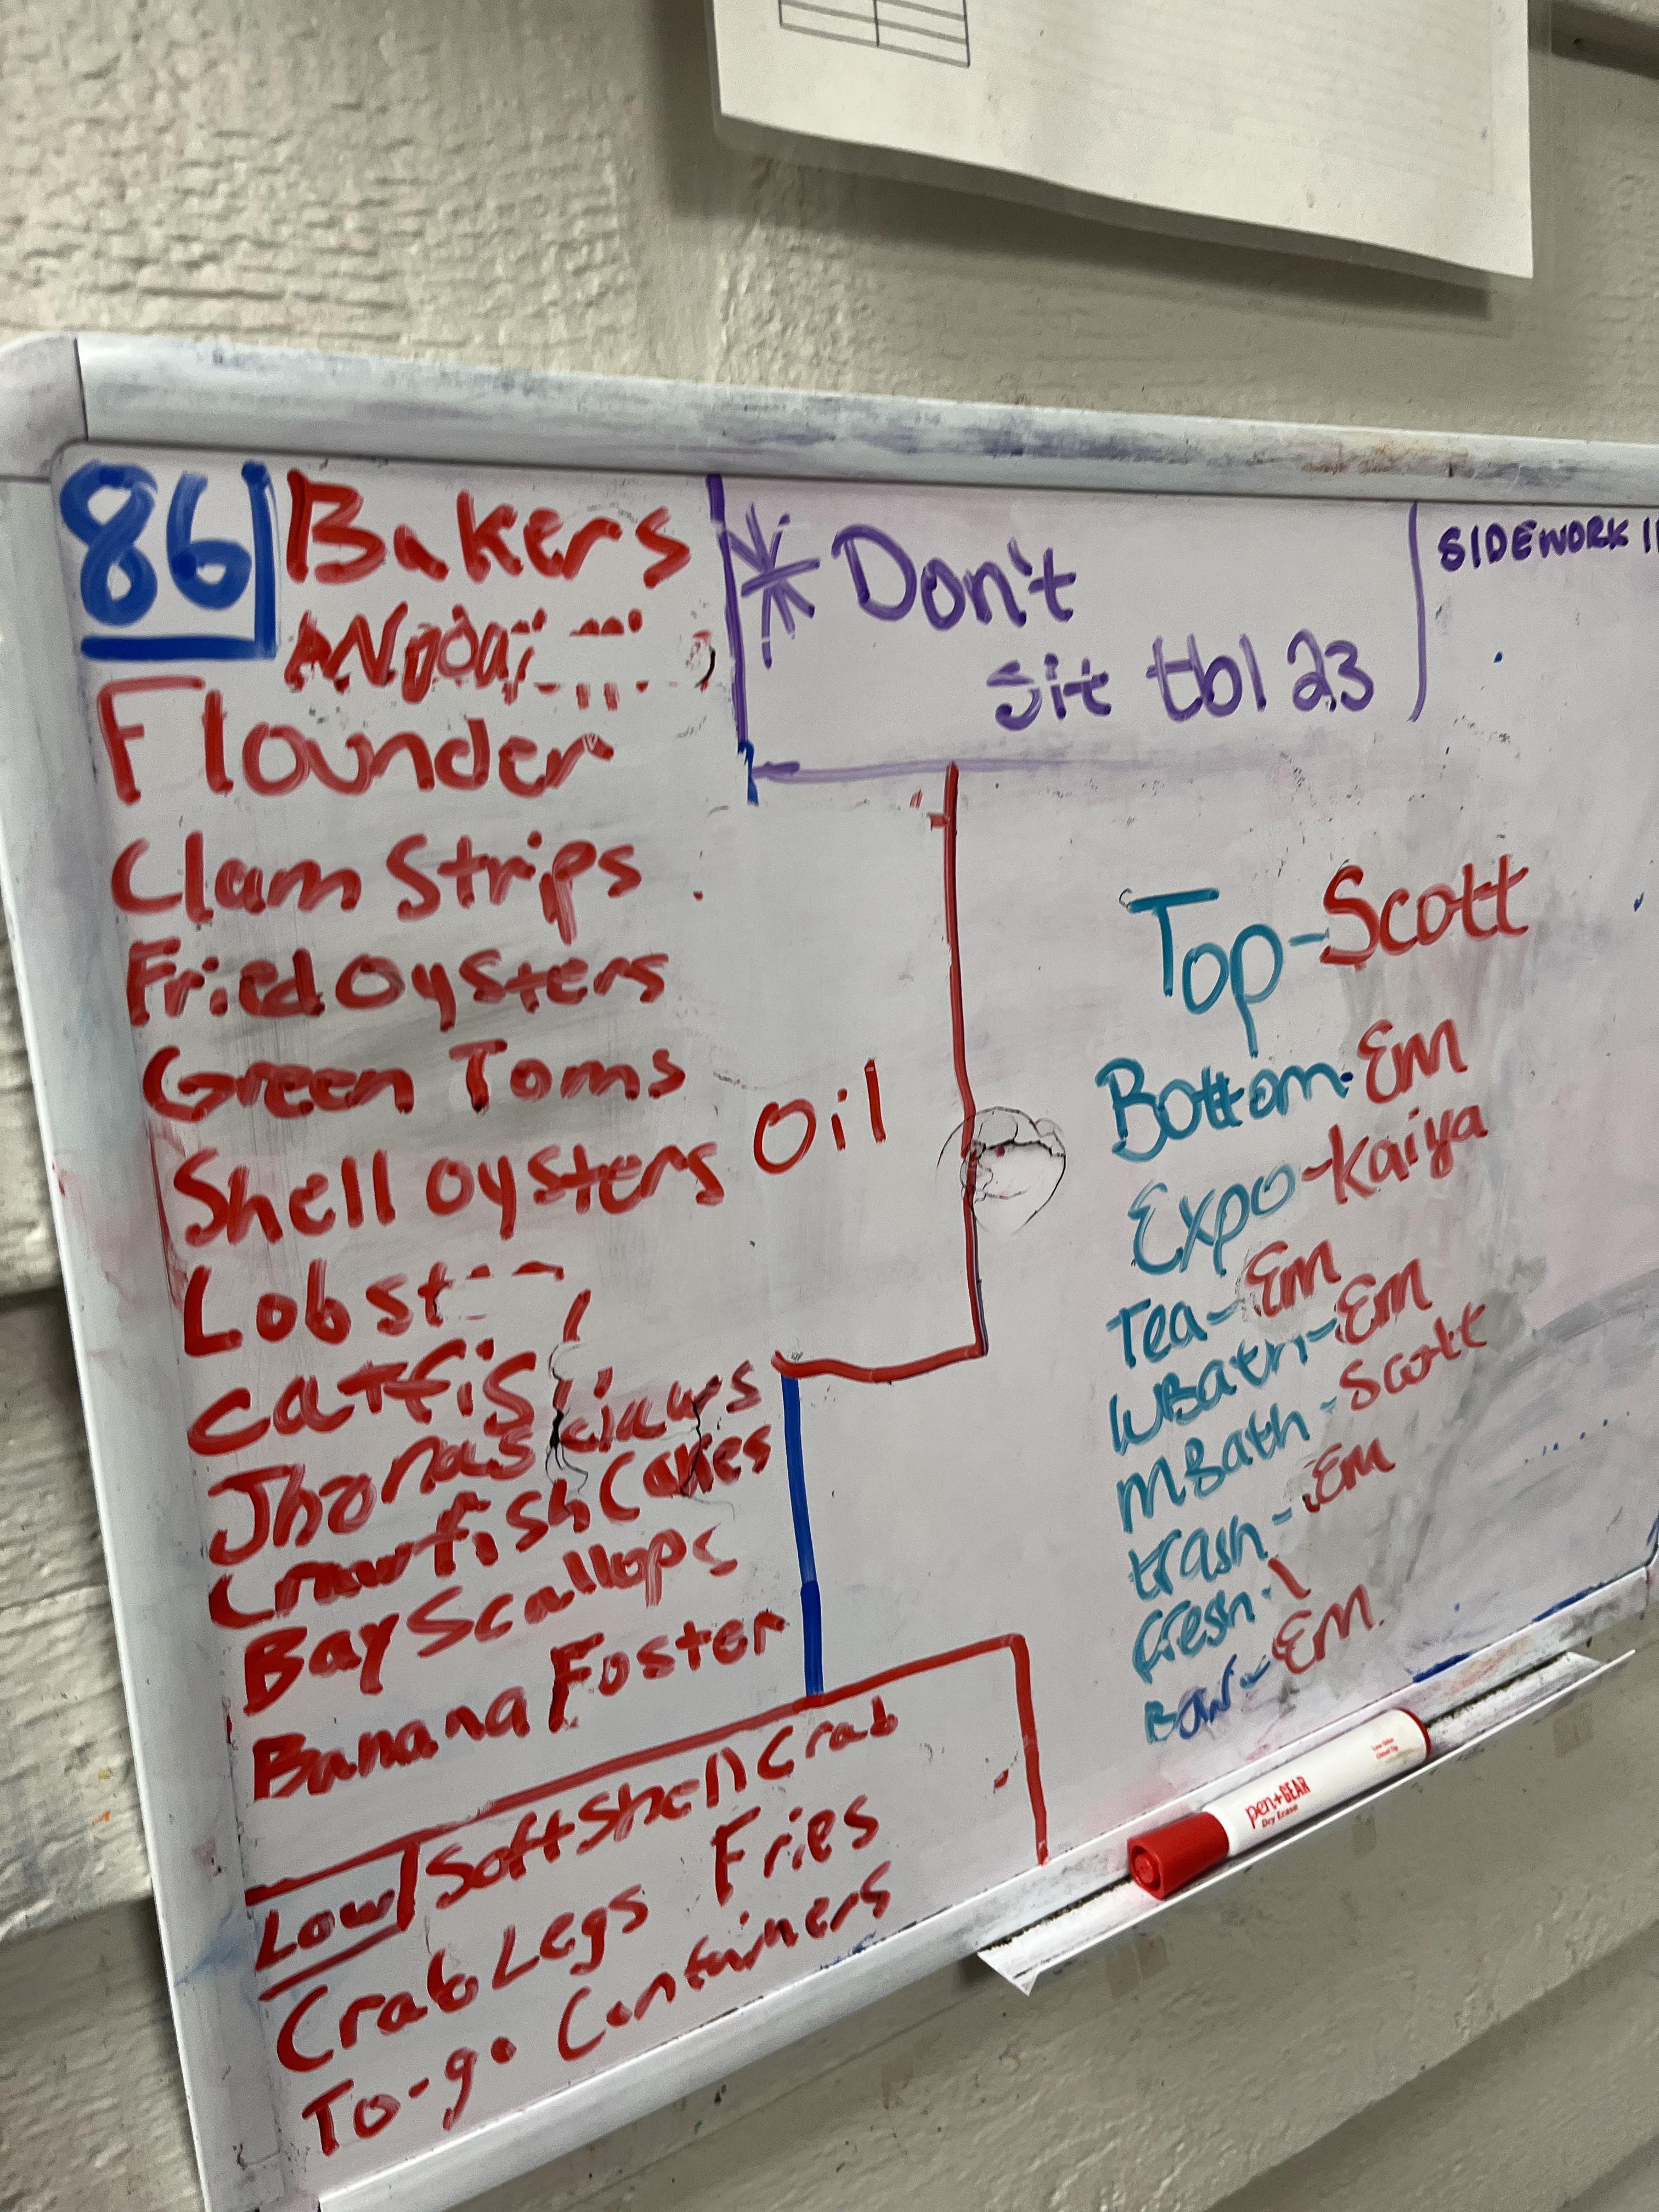 86 Bakers
Flounder
Clam Strips
Fried Oysters
Green Toms
Shell oysters Oil
Lobst
Catfis
Jhonas claws
Crawfish Cakes
Bay Scallops
Banana Foster
Low Soft Shell Crab
Crab Legs Fries
To-go Containers
* Don't
sit tbl 23
SIDEWORK
Top-Scott
Bottom-Em
Expo-Kaiya
Tea-Em
WBath-Em
MBath-Scott
trash-Em
fresh-
Bar-Em
pen+GEAR
Dry Erase